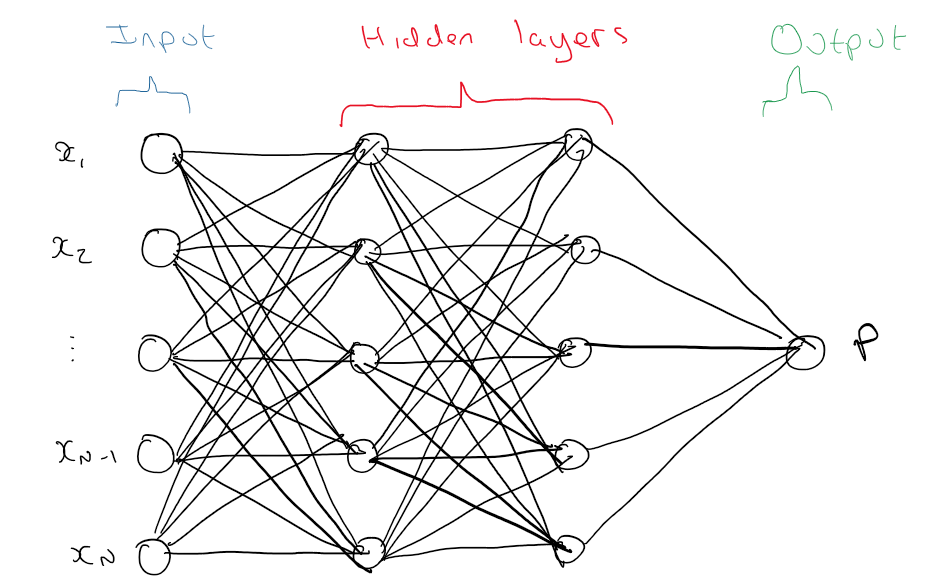 Input Hidden layers Output
x₁
x₂
⋮
x_N-1
x_N
P